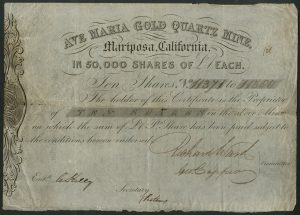 AVE MARIA GOLD QUARTZ MINE,
Mariposa, California,
IN 50,000 SHARES OF £1 EACH.
Ten Shares, No. to
The holder of this Certificate is the Proprietor
of TEN SHARES in the above Mine
on which the sum of £1 Share has been paid subject to
the conditions hereon endorsed
Richard Ward
Committee
Entd.
Secretary